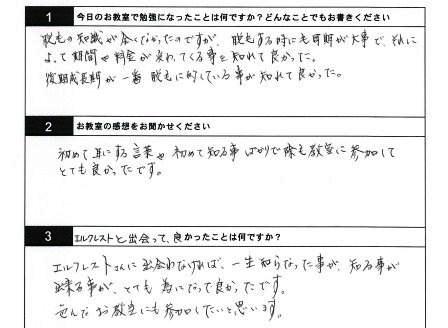 1 今日のお教室で勉強になったことは何ですか？どんなことでもお書きください
脱毛の知識が全くなかったのですが、脱毛する時にも時期が大事で、それに
よって期間や料金が変わってくる事を知れて良かった。
後期成長期が一番脱毛に的している事が知れて良かった。
2 お教室の感想をお聞かせください
初めて耳にする言葉や初めて知る事ばかりで脱毛教室に参加して
とても良かったです。
3 エルクレストと出会って、良かったことは何ですか？
エルクレストさんに出会わなければ、一生知らなった事が、知る事が
出来る事が、とても為になって良かったです。
色んなお教室にも参加したいと思います。